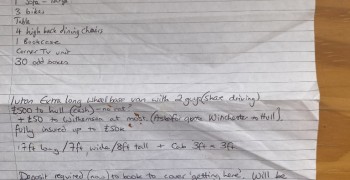 1 Sofa - Large
3 bikes
Table
4 high back dining chairs
1 Bookcase
Corner TV unit
30 odd boxes
Luton Extra long wheel base van with 2 guys (share driving)
£500 to hull (cash) - no vat
+ £50 to Withernsea at most to go to Winchester → Hull
fully insured up to £50k
17ft long / 7ft wide / 8ft tall + Cab 3ft = 3ft
Deposit required (now) to books to cover 'getting here'. Will be